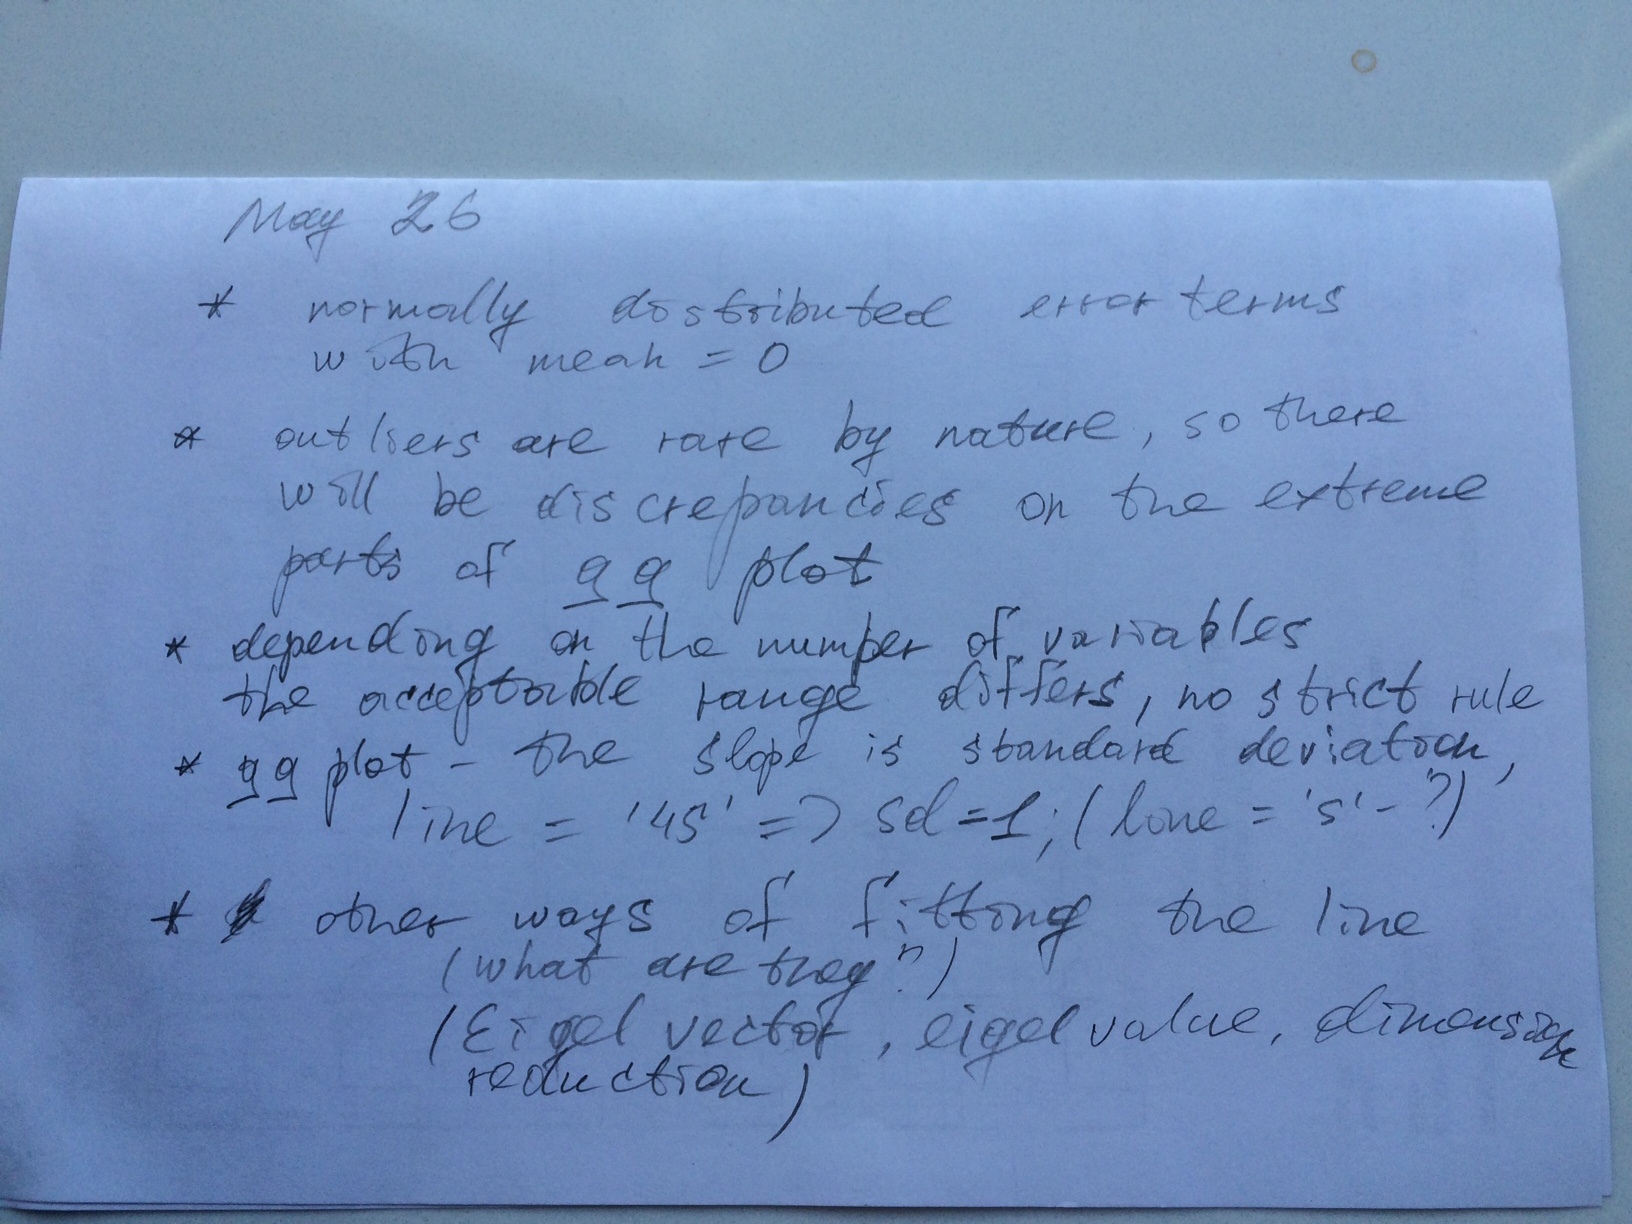 May 26
* normally distributed error terms
with mean = 0
* outliers are rare by nature, so there
will be discrepancies on the extreme
parts of qq plot
* depending on the number of variables
the acceptable range differs, no strict rule
* qq plot - the slope is standard deviation,
line = '45' => sd=1; (line = 's' - ?)
* other ways of fitting the line
(what are they?)
(Eigel vector, eigel value, dimension
reduction)